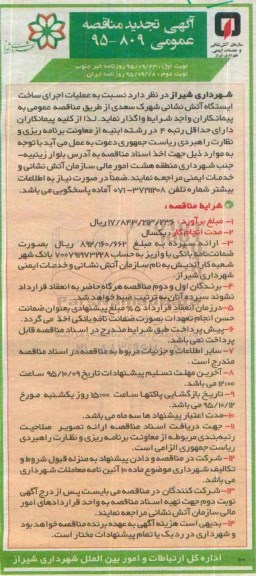 آگهی تجدید مناقصه
عمومی ۸۰۹-۹۵
سازمان آتش نشانی
و خدمات ایمنی
شهرداری شیراز
نوبت اول: ۹۵/۰۹/۲۳ روزنامه خبر جنوب
نوبت دوم: ۹۵/۰۹/۲۸ روزنامه ایران
شهرداری شیراز در نظر دارد نسبت به عملیات اجرای ساخت
ایستگاه آتش نشانی شهرک سعدی از طریق مناقصه عمومی به
پیمانکاران واجد شرایط واگذار نماید. لذا از کلیه پیمانکاران
دارای حداقل رتبه ۴ در رشته ابنیه از معاونت برنامه ریزی و
نظارت راهبردی ریاست جمهوری دعوت به عمل می آید با توجه
به موارد ذیل جهت اخذ اسناد مناقصه به آدرس بلوار زینبیه-
جنب شهرداری منطقه هشت امور مالی سازمان آتش نشانی و
خدمات ایمنی مراجعه نمایند. ضمناً در صورت نیاز به اطلاعات
بیشتر شماره تلفن ۳۷۲۹۱۲۰۸-۰۷۱ آماده پاسخگویی می باشد.
شرایط مناقصه:
۱- مبلغ برآورد: ۱۷/۸۴۳/۲۱۳/۲۳۶ ریال
۲- مدت انجام کار: یکسال
۳- ارائه سپرده به مبلغ ۸۹۲/۱۶۰/۶۶۲ ریال بصورت
ضمانت نامه بانکی یا واریز به حساب بانک شهر
شعبه کارآندیش به نام سازمان آتش نشانی و خدمات ایمنی
شهرداری شیراز.
۴- برندگان اول و دوم مناقصه هرگاه حاضر به انعقاد قرارداد
نشوند سپرده آنان به ترتیب ضبط خواهد شد.
۵- درزمان انعقاد قرارداد ۵٪ مبلغ پیشنهادی بعنوان ضمانت
حسن انجام تعهدات بصورت ضمانت نامه بانکی اخذ می گردد.
۶- پیش پرداخت طبق شرایط مندرج در اسناد مناقصه قابل
پرداخت نمی باشد.
۷- سایر اطلاعات و جزئیات مربوط به مناقصه در اسناد مناقصه
مندرج است.
۸- آخرین مهلت تسلیم پیشنهادات تاریخ ۹۵/۱۰/۰۹ ساعت
۱۲:۰۰ می باشد.
۹- تاریخ بازگشایی پاکتها ساعت ۱۵:۰۰ روز یکشنبه مورخ
۹۵/۱۰/۱۲ می باشد.
۱۰- مدت اعتبار پیشنهاد ها سه ماه می باشد.
۱۱- جهت دریافت اسناد مناقصه ارائه تصویر صلاحیت
رتبه بندی مربوطه از معاونت برنامه ریزی و نظارت راهبردی
ریاست جمهوری الزامی است.
۱۲- شرکت در مناقصه و دادن پیشنهاد به منزله قبول شروط و
تکالیف شهرداری موضوع ماده ۱۰ آئین نامه معاملات شهرداری
می باشد.
۱۳- شرکت کنندگان در مناقصه می بایست پس از درج آگهی
نوبت دوم جهت تهیه اسناد مناقصه به واحد قراردادهای امور
مالی سازمان آتش نشانی مراجعه نمایند.
۱۴- بدیهی است هزینه آگهی به عهده برنده مناقصه خواهد بود
و شهرداری در رد یک یا تمام پیشنهادات مختار است.
اداره کل ارتباطات و امور بین الملل شهرداری شیراز